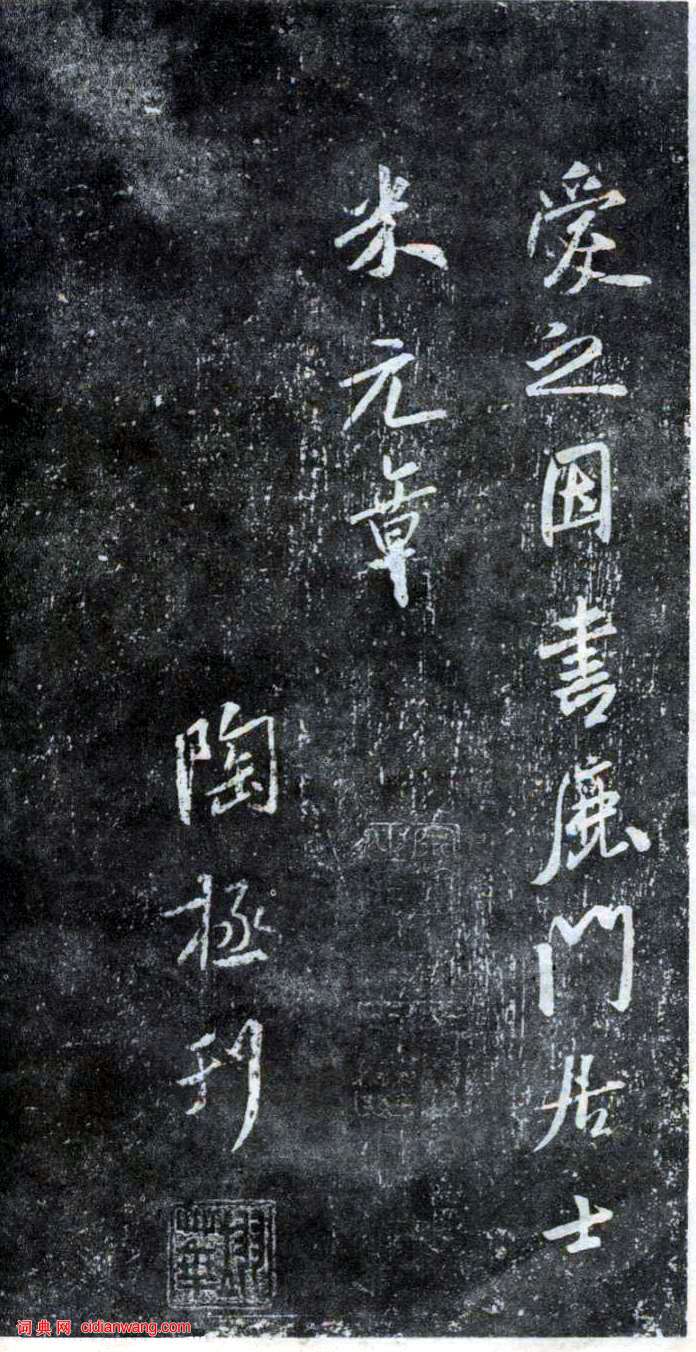 爱之因書鹿門居士
米元章
陶拯刊
词典网 cidianwang.com